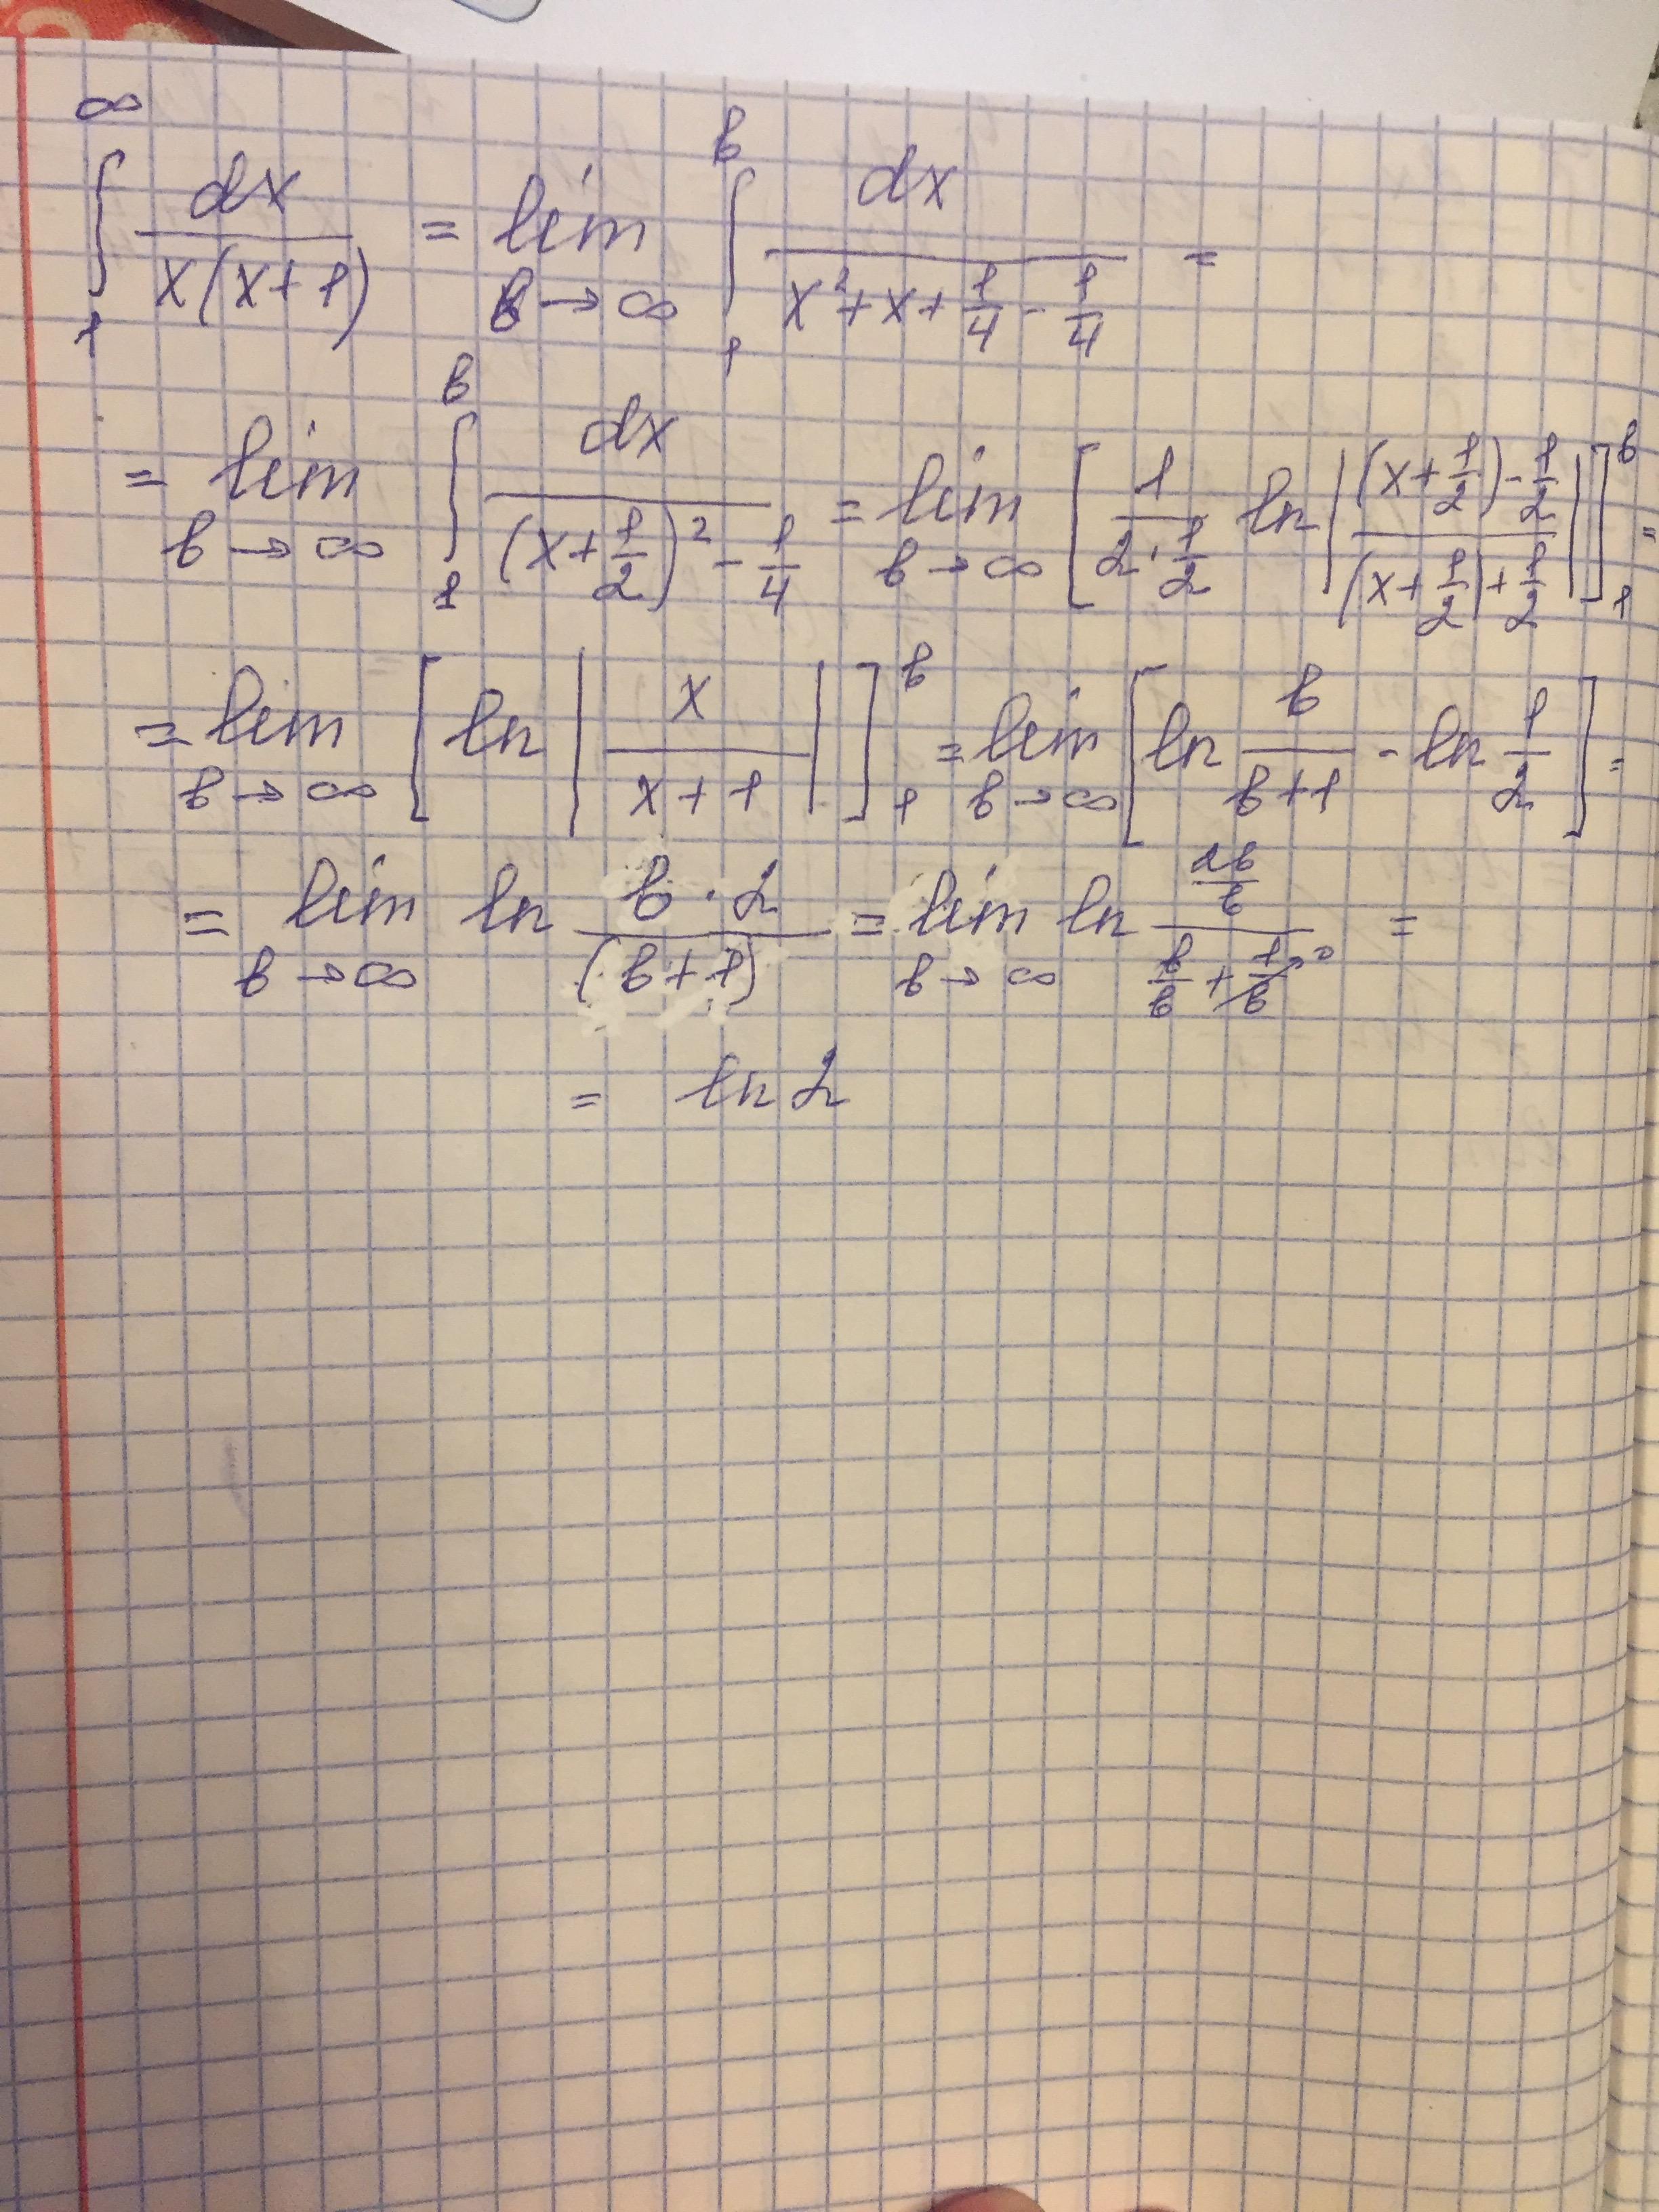 ∫₁^∞ dx/(x(x+1)) = lim_{b→∞} ∫₁^b dx/(x²+x+1/4-1/4) =
= lim_{b→∞} ∫₁^b dx/((x+1/2)²-1/4) = lim_{b→∞} [1/(2·1/2) ln|((x+1/2)-1/2)/((x+1/2)+1/2)|]₁^b =
= lim_{b→∞} [ln|x/(x+1)|]₁^b = lim_{b→∞} [ln b/(b+1) - ln 1/2] =
= lim_{b→∞} ln (b·2)/(b+1) = lim_{b→∞} ln (2b/b)/(b/b+1/b→0) =
= ln 2